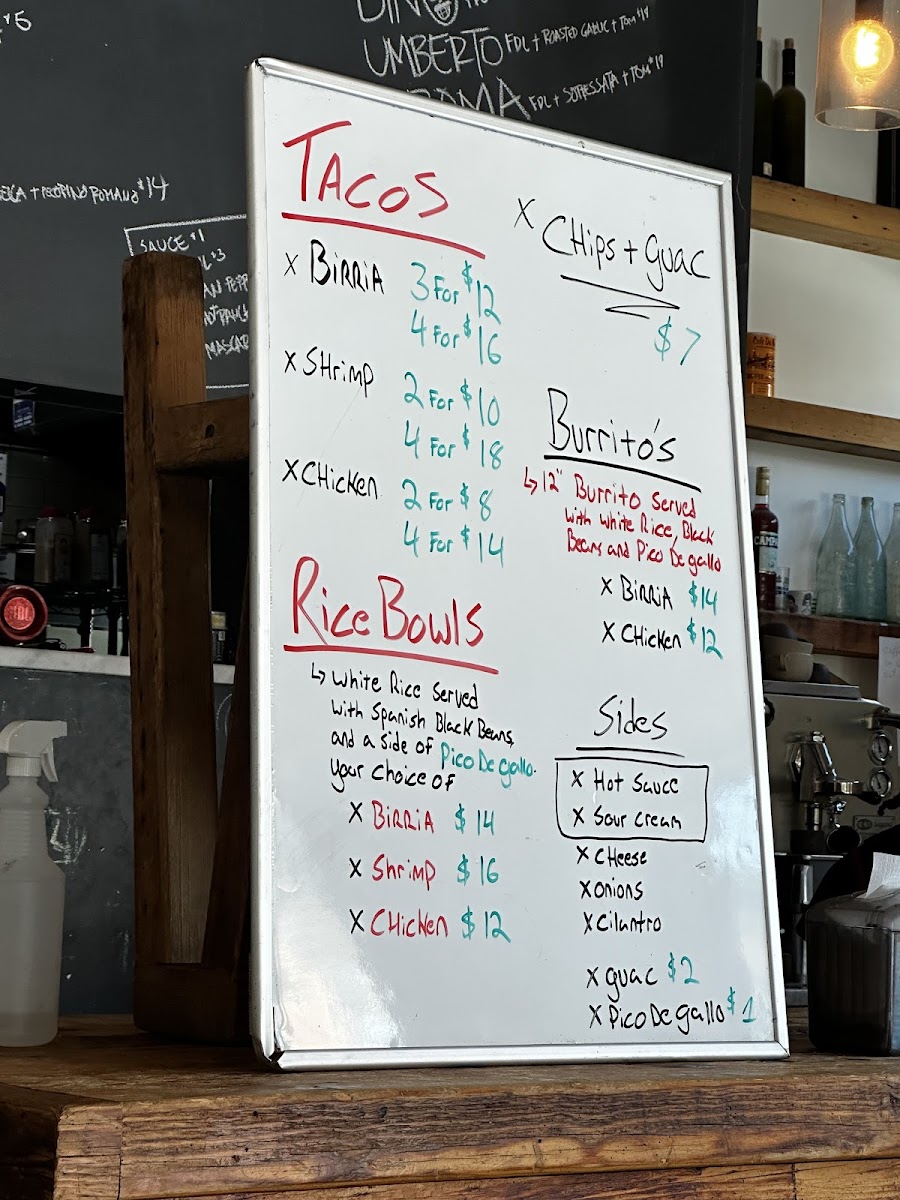 $5
UMBERTO FDL + ROASTED GARLIC + TOM $14
FDL + SOPRESSATA + TOM $19
+ PECORINO ROMANO $14
SAUCE $1
TACOS
X BIRRIA 3 For $12
4 For $16
X SHrimp 2 For $10
4 For $18
X CHicken 2 For $8
4 For $14
Rice Bowls
↳ White Rice Served
with Spanish Black Beans,
and a side of Pico De gallo.
your choice of
X BIRRIA $14
X Shrimp $16
X CHicken $12
X CHips + guac
$7
Burrito's
↳ 12" Burrito Served
with white Rice, Black
Beans and Pico De gallo
X BIRRIA $14
X CHicken $12
Sides
X Hot Sauce
X Sour cream
X CHeese
X onions
X cilantro
X guac $2
X Pico De gallo $1